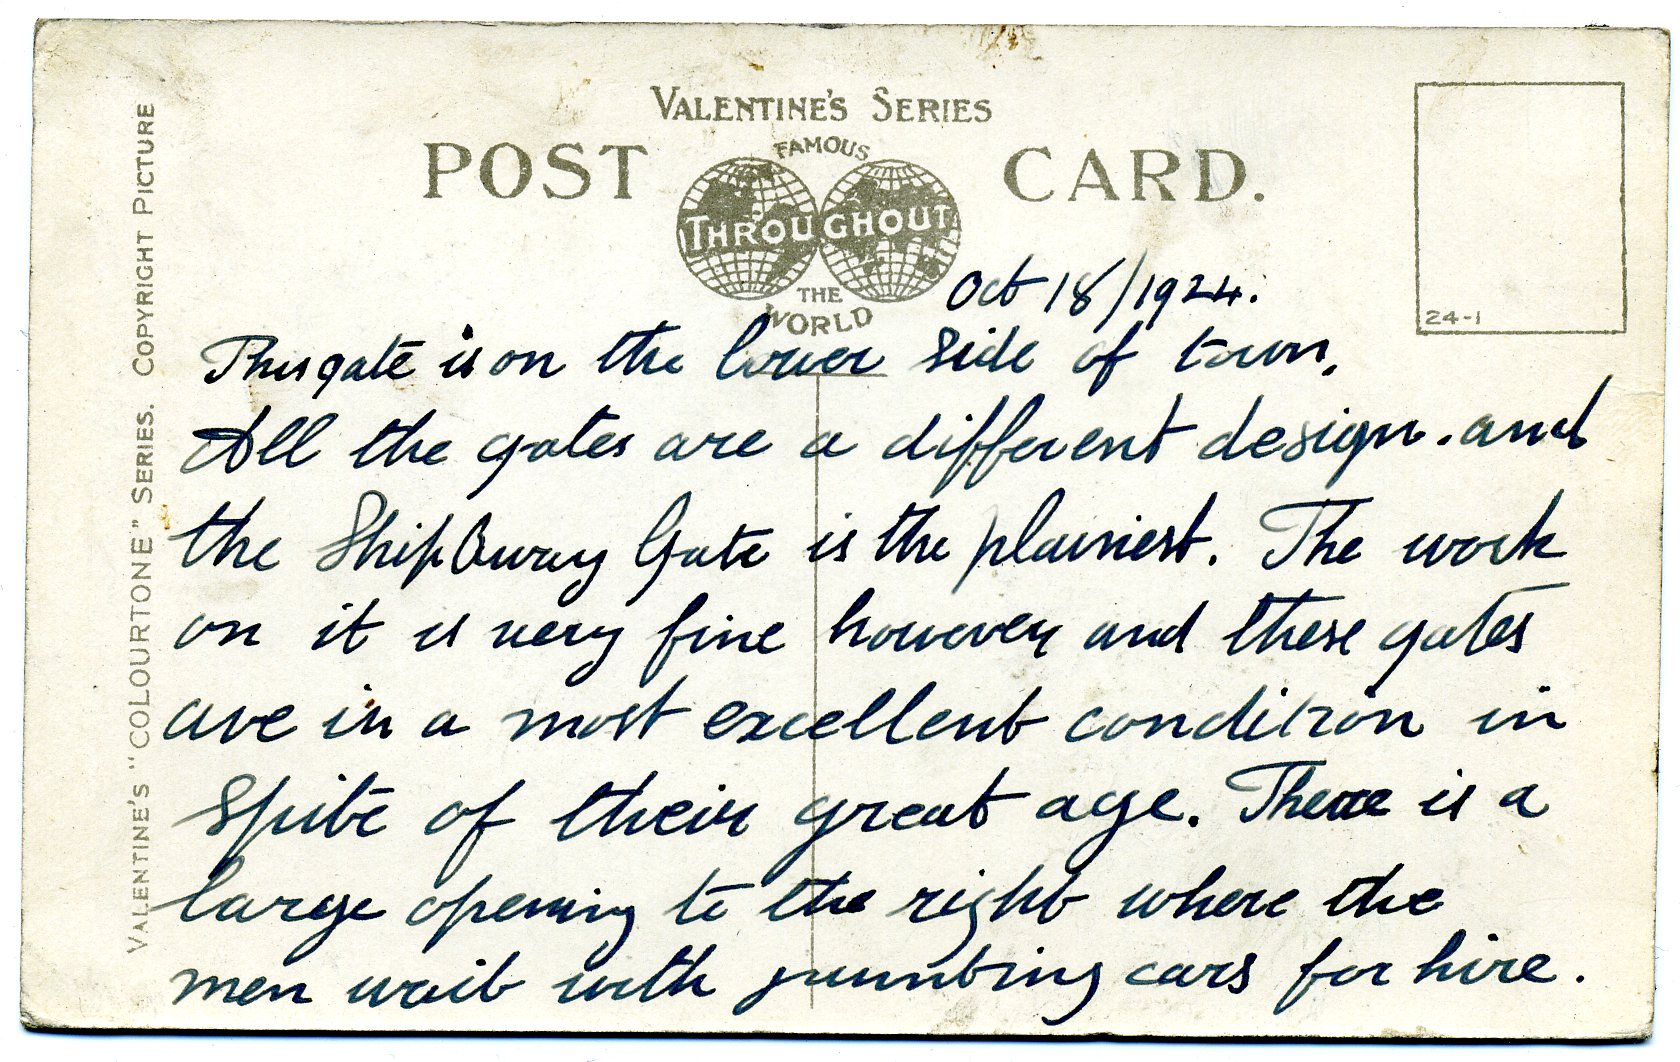 VALENTINE'S SERIES
POST CARD.
FAMOUS
THROUGHOUT
THE
WORLD
24-1
VALENTINE'S "COLOURTONE" SERIES. COPYRIGHT PICTURE
Oct 18/1924.
This gate is on the lower side of town.
All the gates are a different design. and
the Gate is the plainest. The work
on it is very fine however and these gates
are in a most excellent condition in
spite of their great age. There is a
large opening to the right where the
men wait with cars for hire.